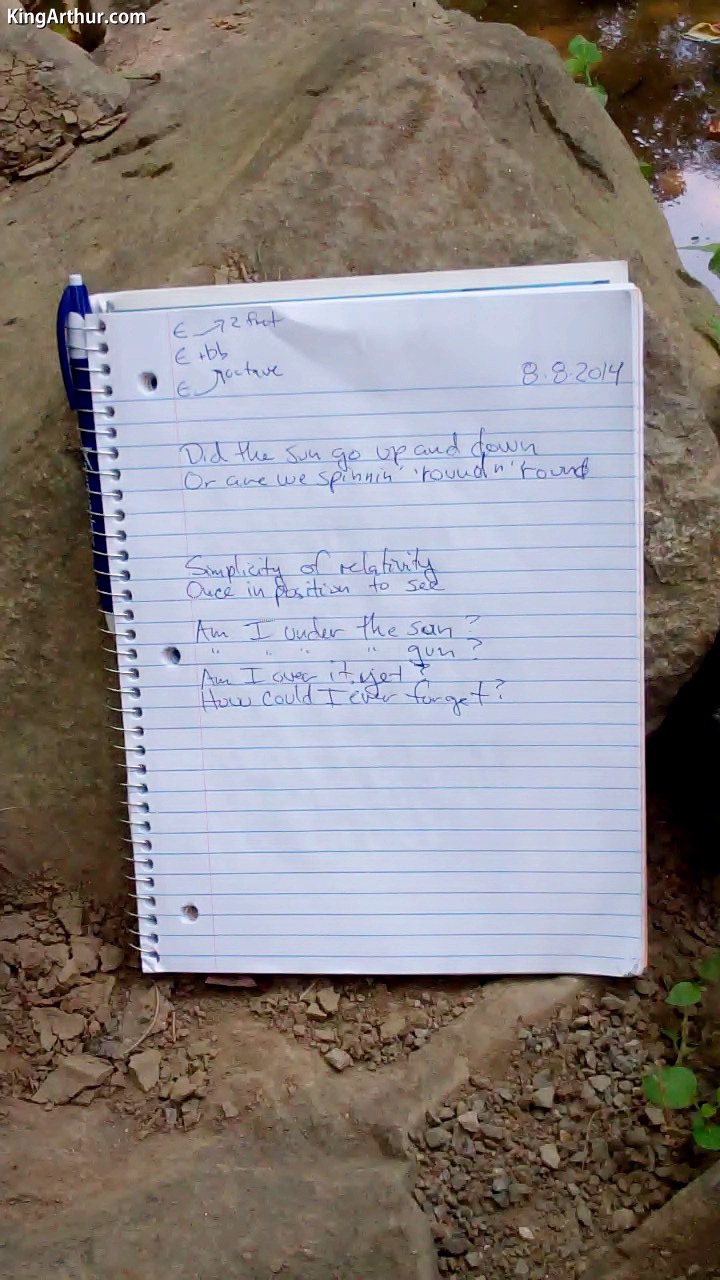 KingArthur.com
E → 2 fret
E + bb
E → octave
8.8.2014
Did the sun go up and down
Or are we spinnin' 'round n' round
Simplicity of relativity
Once in position to see
Am I under the sun?
" " " " gun?
Am I over it, yet?
How could I ever forget?